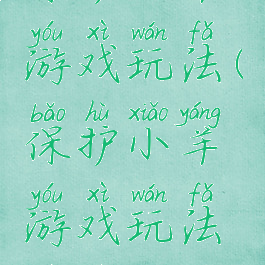 yóu xì wán fǎ
游戏玩法(
bǎo hù xiǎo yáng
保护小羊
yóu xì wán fǎ
游戏玩法